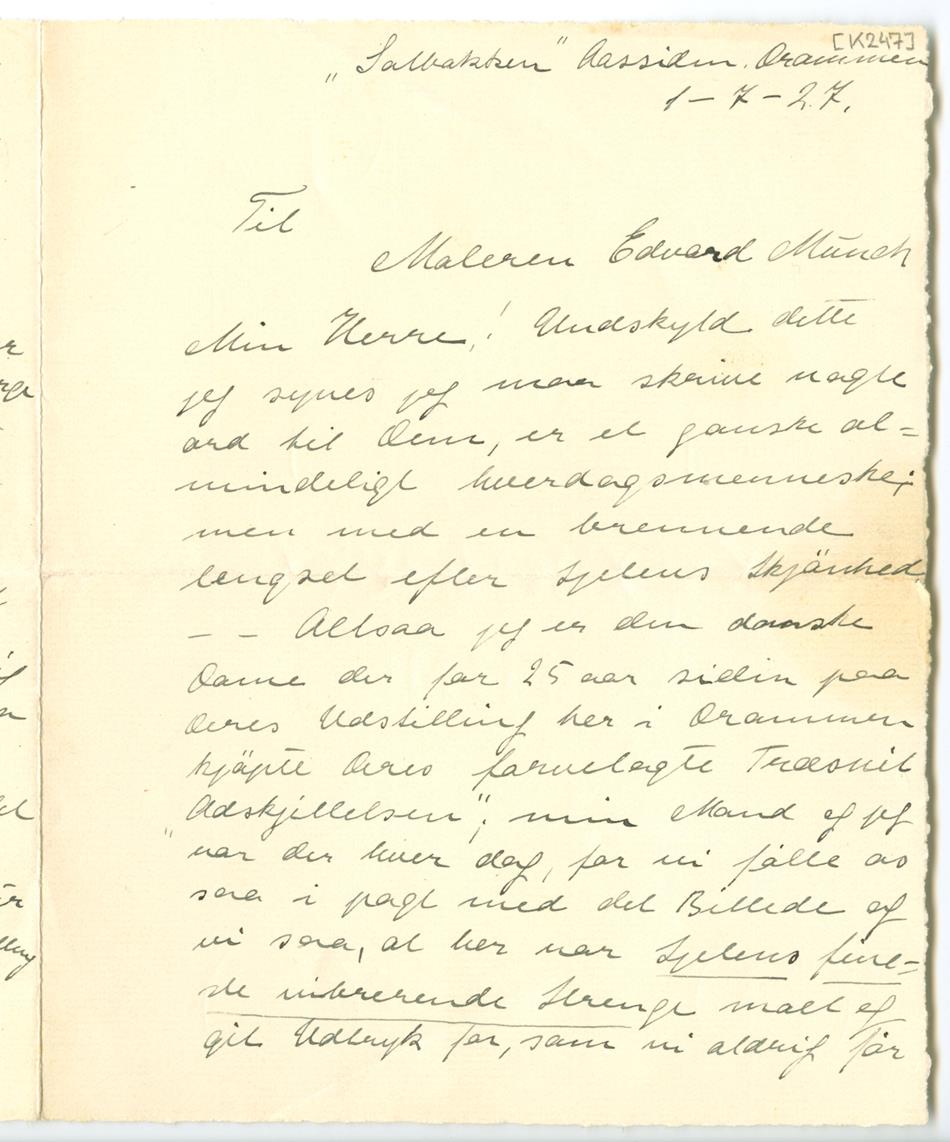 [K247]
„Solbakken" Aassiden. Drammen
1 – 7 – 27.
Til
Maleren Edvard Munch
Min Herre! Undskyld dette
jeg synes jeg maa skrive nogle
ord til Dem, er et ganske al=
mindeligt hverdagsmenneske;
men med en brennende
lengsel efter Sjelens Skjönhed
– – Altsaa jeg er den danske
Dame der for 25 aar siden paa
Deres Udstilling her i Drammen
kjöpte Deres farvelagte Træsnit
„Adskjillelsen"; min Mand og jeg
var der hver dag, for vi fölte os
saa i pagt med det Billede og
vi saa, at her var Sjelens fine=
ste vibrerende Strenge malt og
git Udtryk for, som vi aldrig för